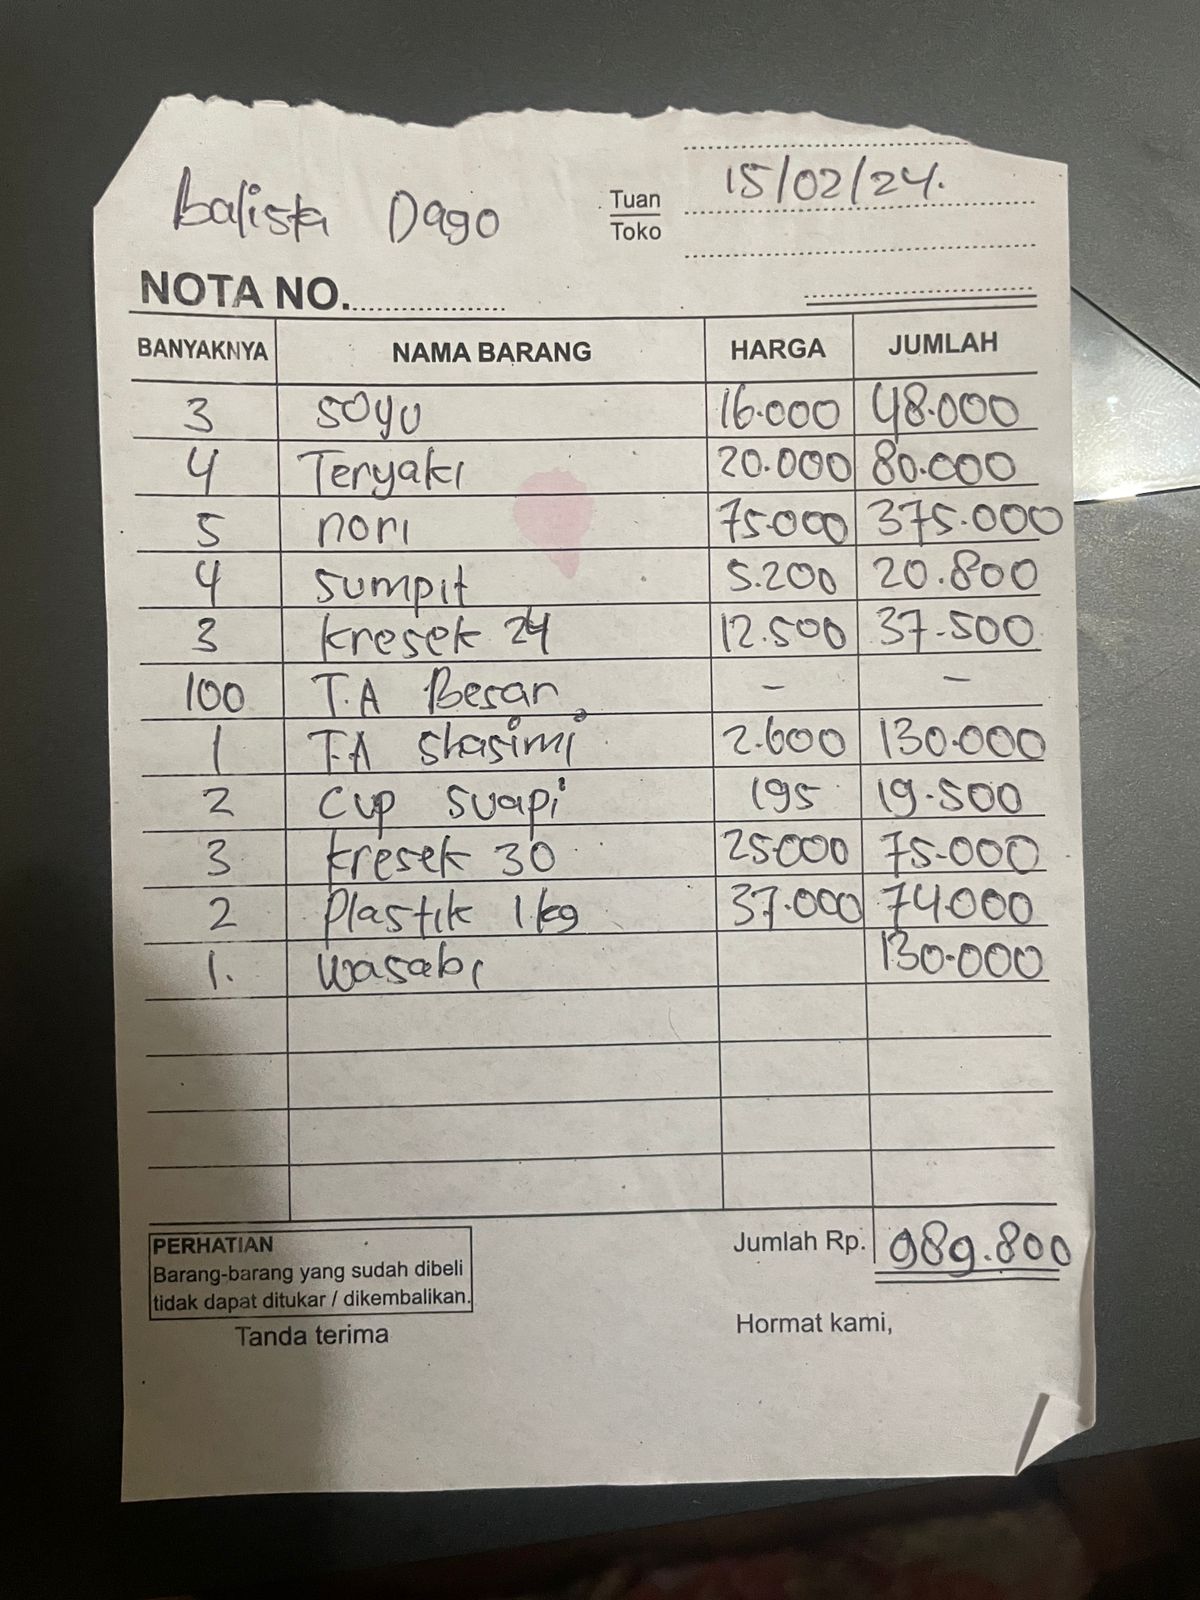 Balista Dago
Tuan
Toko
15/02/24.
NOTA NO.
BANYAKNYA NAMA BARANG HARGA JUMLAH
3 soyu 16.000 48.000
4 Teryaki 20.000 80.000
5 nori 75.000 375.000
4 sumpit 5.200 20.800
3 kresek 24 12.500 37.500
100 T.A Besar - -
1 T.A shasimi 2.600 130.000
2 cup suapi 195 19.500
3 kresek 30 25000 75.000
2 Plastik 1 kg 37.000 74.000
1. wasabi 130.000
Jumlah Rp. 989.800
PERHATIAN
Barang-barang yang sudah dibeli
tidak dapat ditukar / dikembalikan.
Tanda terima Hormat kami,